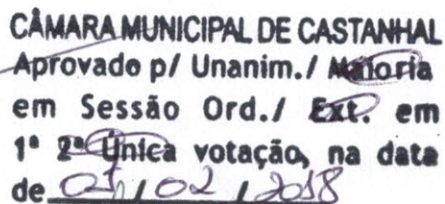 CÂMARA MUNICIPAL DE CASTANHAL
Aprovado p/ Unanim./ Maioria
em Sessão Ord./ Ext. em
1ª 2ª Única votação, na data
de 01/02/2018